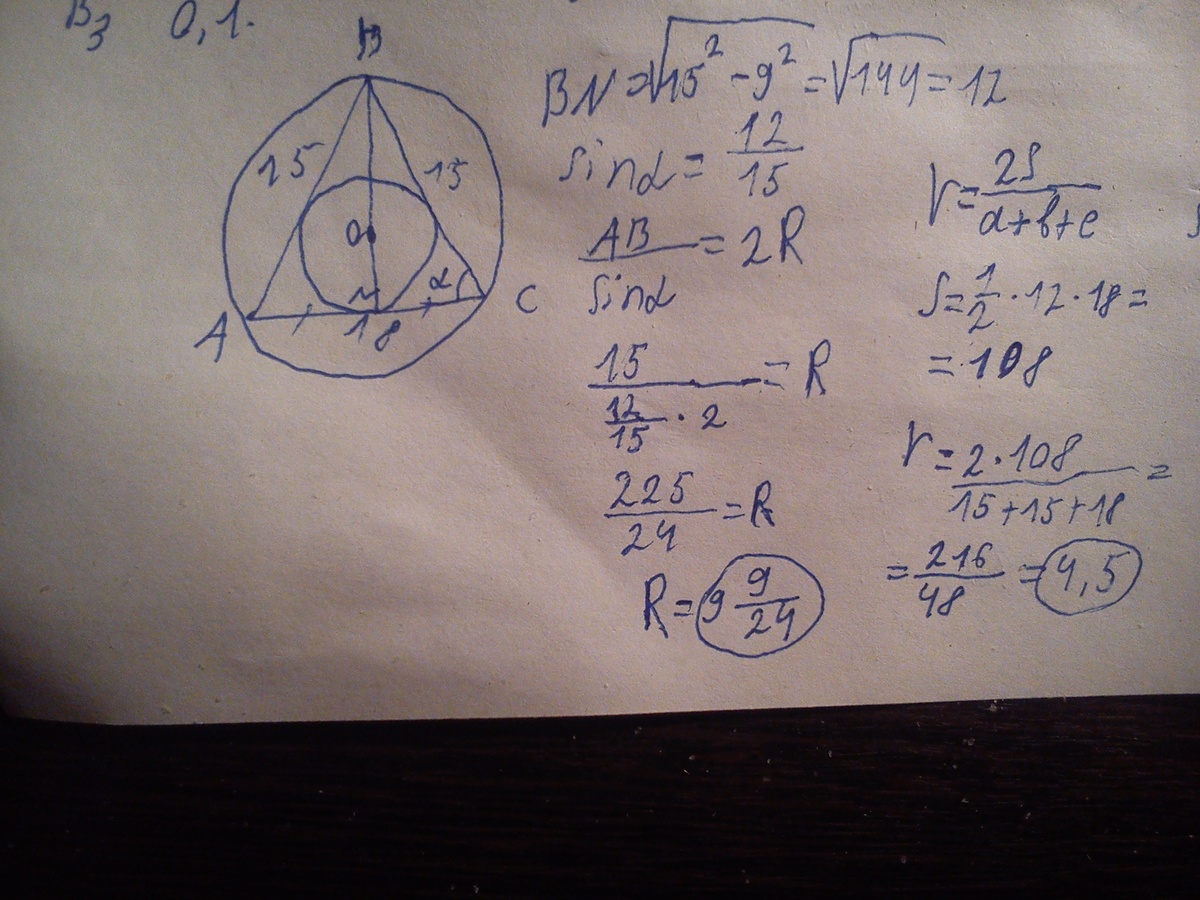 B3 0,1.
B
15 15
O
α
N
A 18 C
BN=√15²-9²=√144=12
sinα=12/15
AB/sinα=2R
15/(12/15·2)=R
225/24=R
R=9 9/24
r=2S/a+b+c
S=1/2·12·18=
=108
r=2·108/15+15+18=
=216/48=4,5